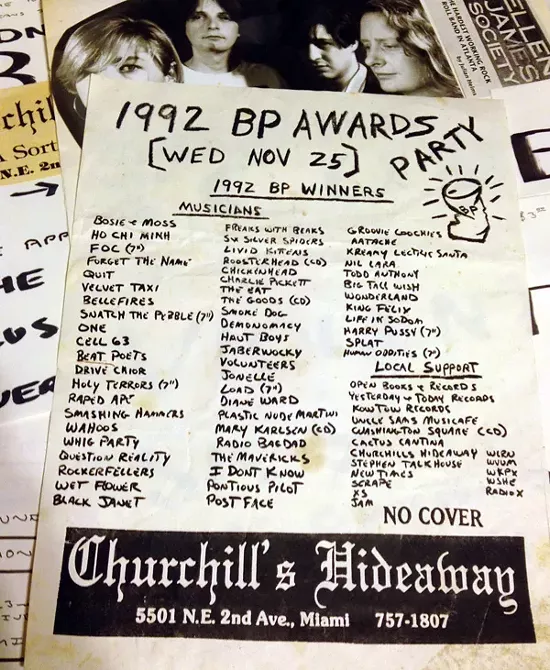 1992 BP AWARDS
PARTY
[WED NOV 25]
1992 BP WINNERS
MUSICIANS
BOSIE & MOSS
HO CHI MINH
FOC (7")
FORGET THE NAME
QUIT
VELVET TAXI
BELLEFIRES
SNATCH THE PEBBLE (7")
ONE
CELL 63
BEAT POETS
DRIVE CHOIR
HOLY TERRORS (7")
RAPED APE
SMASHING HAMMERS
WAHOOS
WHIG PARTY
QUESTION REALITY
ROCKERFELLERS
WET FLOWER
BLACK JANET
FREAKS WITH BEAKS
SIX SILVER SPIDERS
LIVID KITTENS
ROOSTERHEAD (CD)
CHICKENHEAD
CHARLIE PICKETT
THE EAT
THE GOODS (CD)
SMOKE DOG
DEMONOMACY
HAUT BOYS
JABERWOCKY
VOLUNTEERS
JONELLE
LOAD (7")
DIANE WARD
PLASTIC NUDE MARTINI
MARY KARLSEN (CD)
RADIO BAGDAD
THE MAVERICKS
I DONT KNOW
PONTIOUS PILOT
POST FACE
GROOVIE COOCHIES
AATACHE
KREAMY LECTRIC SANTA
NIL LARA
TODD ANTHONY
BIG TALL WISH
WONDERLAND
KING FELIX
LIFE IN SODOM
HARRY PUSSY (7")
SPLAT
HUMAN ODDITIES (7")
LOCAL SUPPORT
OPEN BOOKS & RECORDS
YESTERDAY & TODAY RECORDS
KOWTOW RECORDS
UNCLE SAMS MUSICAFE
WASHINGTON SQUARE (CD)
CACTUS CANTINA
CHURCHILLS HIDEAWAY WLRN
STEPHEN TALKHOUSE WVUM
NEW TIMES WKPX
SCRAPE WSHE
XS RADIO X
JAM
BP
NO COVER
Churchill's Hideaway
5501 N.E. 2nd Ave., Miami 757-1807
ELLEN
JAMES
SOCIETY
THE HARDEST WORKING ROCK
ROLL BAND IN ATLANTA
chil
A Sort
N.E. 2n